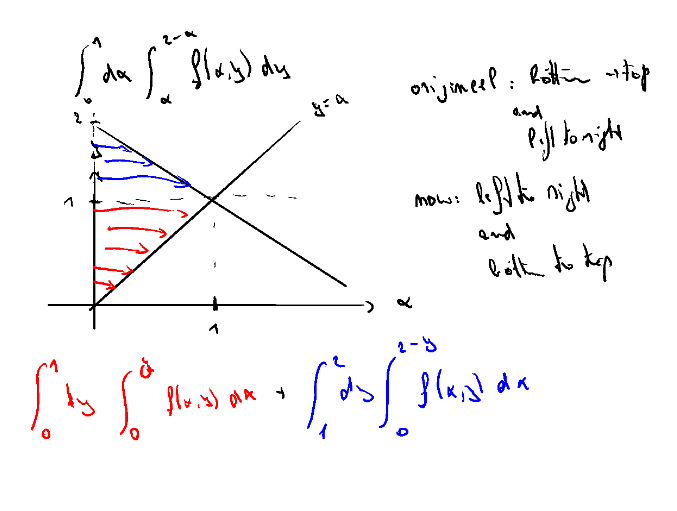 ∫₀¹ dx ∫ₓ²⁻ˣ f(x,y) dy
y=x
2
1
1
x
origineel: bottom → top
and
left to right
now: left to right
and
bottom to top
∫₀¹ dy ∫₀ʸ f(x,y) dx + ∫₁² dy ∫₀²⁻ʸ f(x,y) dx